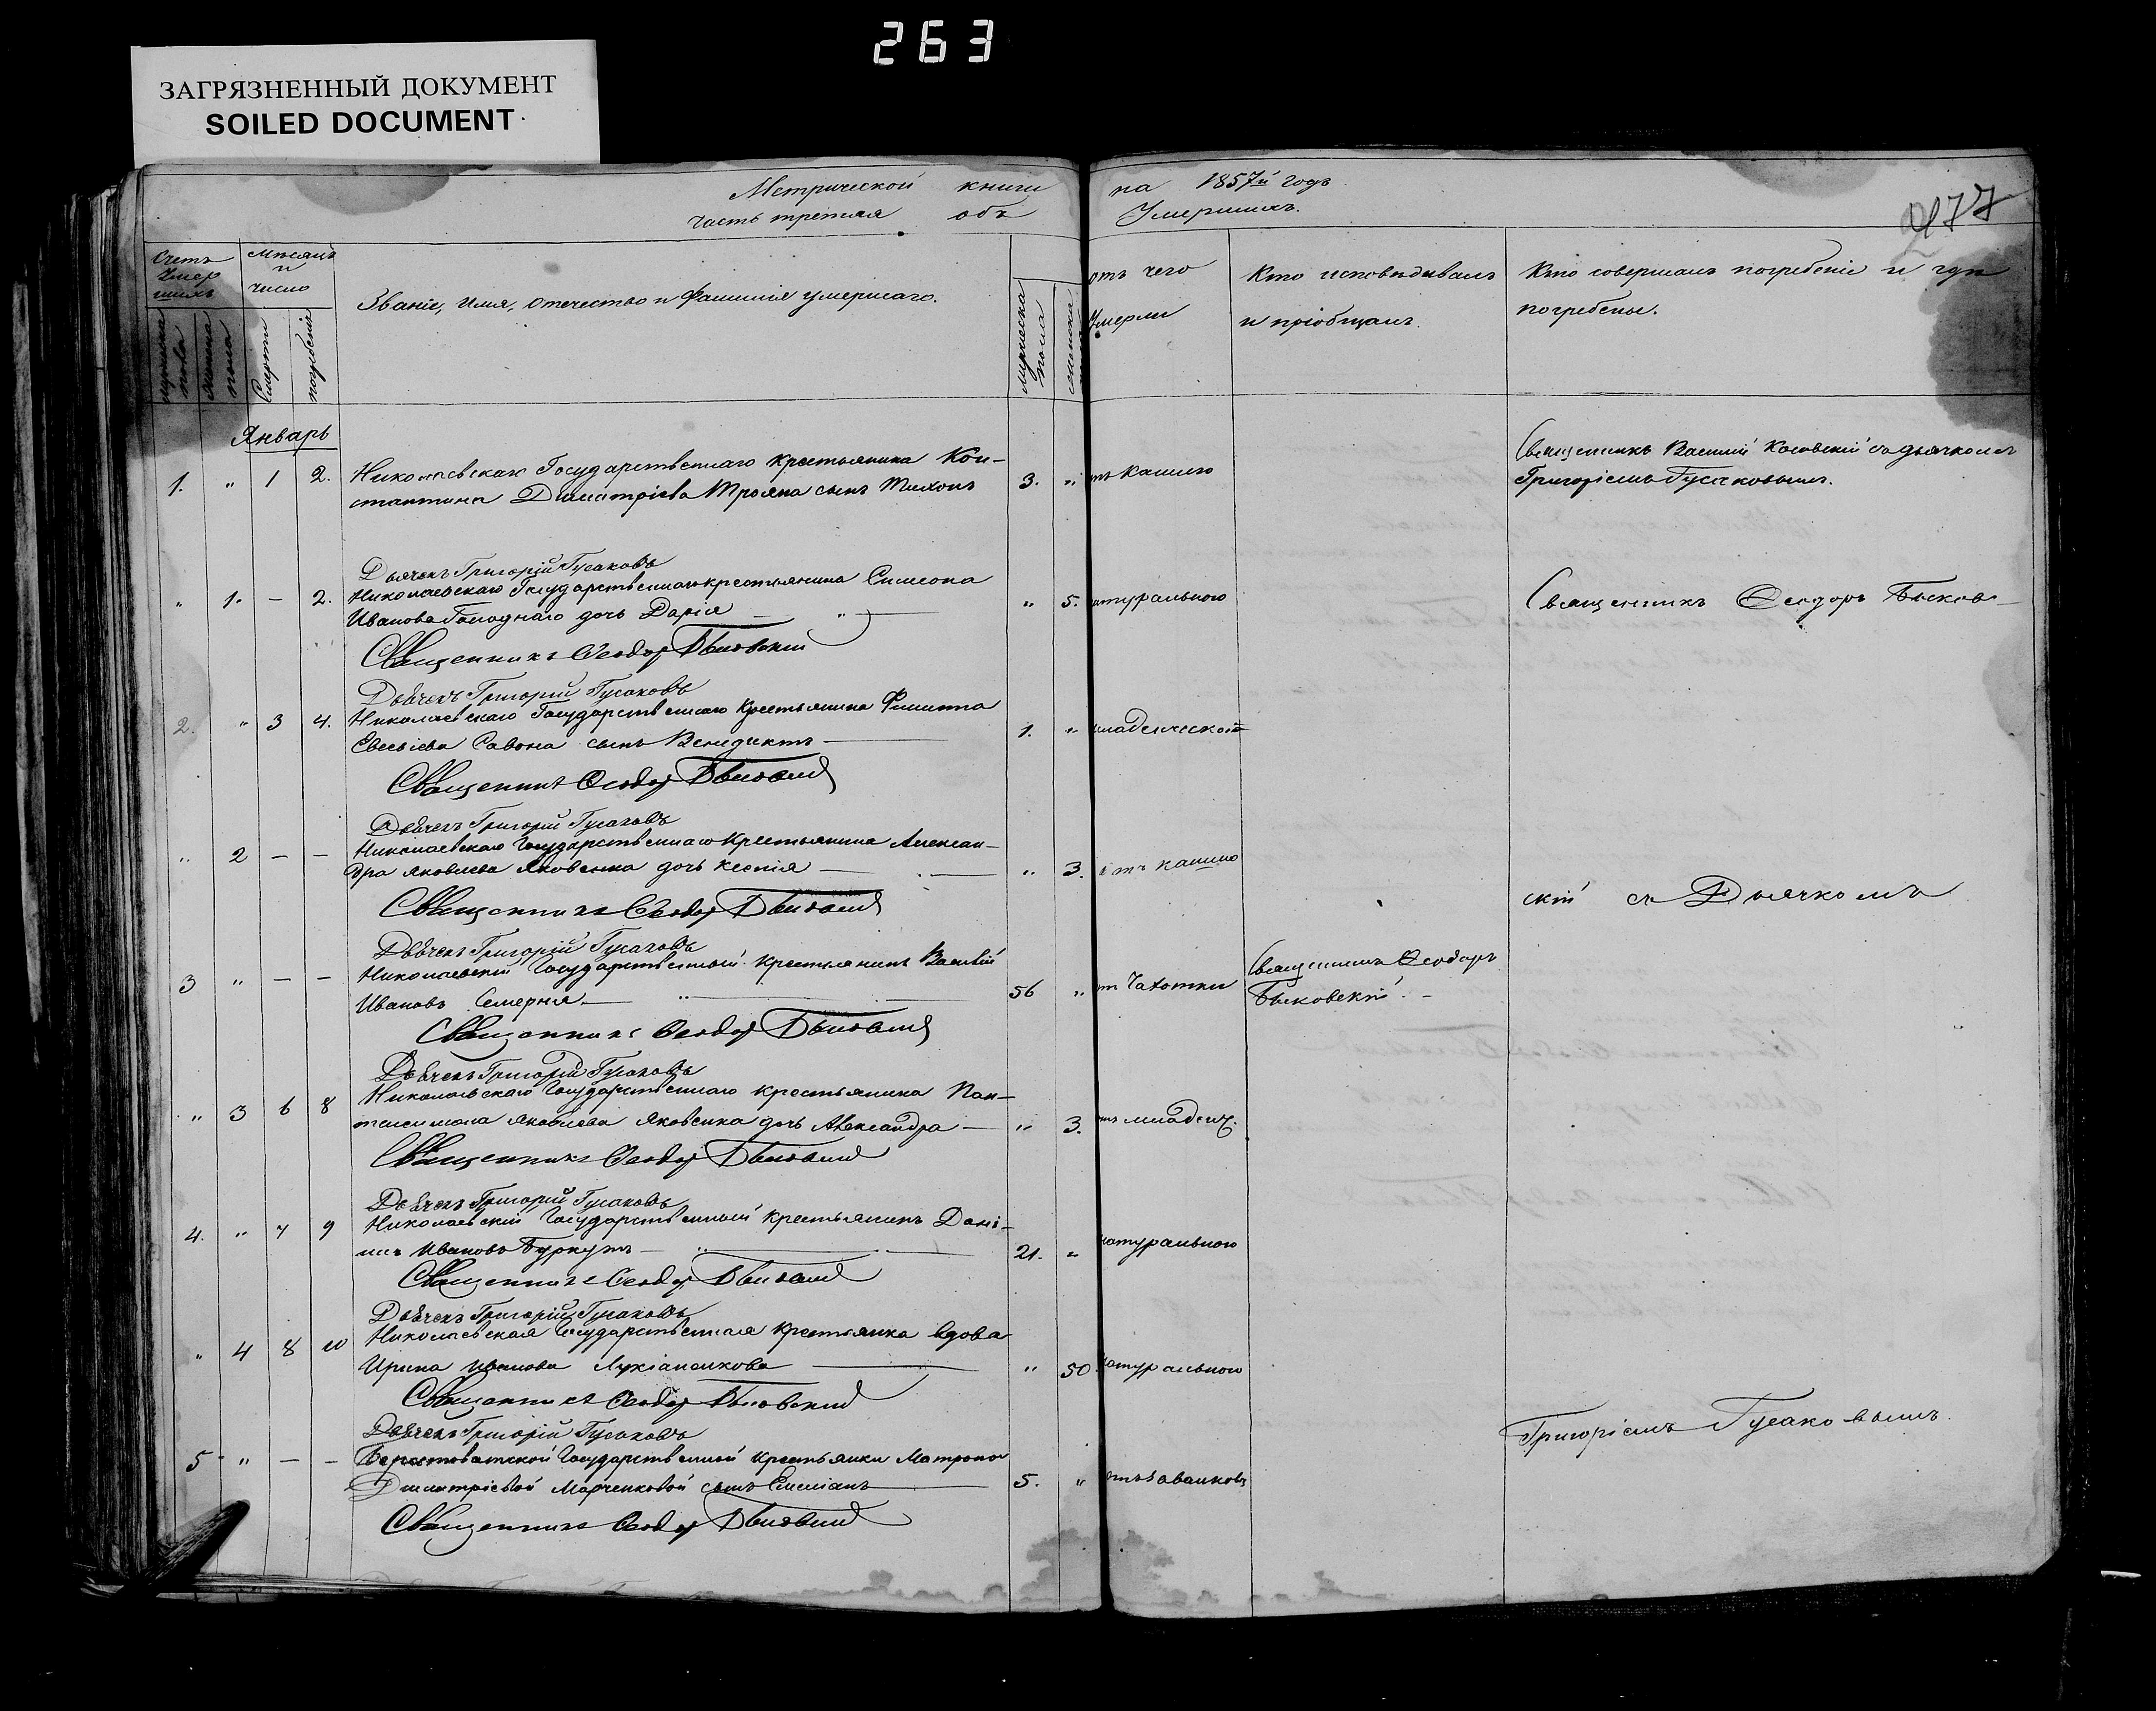 263
ЗАГРЯЗНЕННЫЙ ДОКУМЕНТ
SOILED DOCUMENT
Метрической книги на 1857й годъ
часть третія объ Умершихъ.
277
Счетъ Умершихъ
мужеска пола
женска пола
Мѣсяцъ и число
Смерти
погребенія
Званіе, имя, отечество и Фамилія умершаго.
мужеска пола
женска
отъ чего Умерли
Кто исповѣдывалъ и пріобщалъ.
Кто совершалъ погребеніе и гдѣ погребены.
Январь
1. " 1 2. Николаевскаго Государственнаго крестьянина Кон- 3. " отъ кашлю Священникъ Василій Косовскій съ дьячкомъ
стантина Димитріева Трояна сынъ Тихонъ Григоріемъ Гусаковымъ.
Дьячекъ Григорій Гусаковъ
" 1. — 2. Николаевскаго Государственнаго крестьянина Симеона " 5. натуральною Священникъ Ѳеодоръ Быков-
Иванова Голоднаго дочь Дарія — " —
Священникъ Ѳеодоръ Быковскій
Дьячекъ Григорій Гусаковъ
2. " 3 4. Николаевскаго Государственнаго крестьянина Филиппа 1. " младенческой
Евсевіева Савона сынъ Венедиктъ —
Священникъ Ѳеодоръ Быковскій
Дьячекъ Григорій Гусаковъ
" 2 — — Николаевскаго Государственнаго крестьянина Алексан- " 3. отъ кашлю
дра Яковлева Яковенка дочь Ксенія — скій съ Дьячкомъ
Священникъ Ѳеодоръ Быковскій
Дьячекъ Григорій Гусаковъ
3 " — — Николаевскій Государственный крестьянинъ Василій 56 " отъ Чахотки Священникъ Ѳеодоръ
Ивановъ Семерня — " — Быковскій. —
Священникъ Ѳеодоръ Быковскій
Дьячекъ Григорій Гусаковъ
" 3 6 8 Николаевскаго Государственнаго крестьянина Пан- " 3. отъ младенч.
телеимона Яковлева Яковенка дочь Александра —
Священникъ Ѳеодоръ Быковскій
Дьячекъ Григорій Гусаковъ
4. " 7 9 Николаевскій Государственный крестьянинъ Дані- 21. " натуральною
илъ Ивановъ Буркутъ — " —
Священникъ Ѳеодоръ Быковскій
Дьячекъ Григорій Гусаковъ
" 4 8 10 Николаевская Государственная крестьянка вдова " 50 натуральною
Ирина Иванова Лукіаненкова —
Священникъ Ѳеодоръ Быковскій
Дьячекъ Григорій Гусаковъ Григоріемъ Гусаковымъ.
5 " — — Берестоватской Государственной крестьянки Матроны 5. "
Димитріевой Марченковой сынъ Емеліанъ —
Священникъ Ѳеодоръ Быковскій